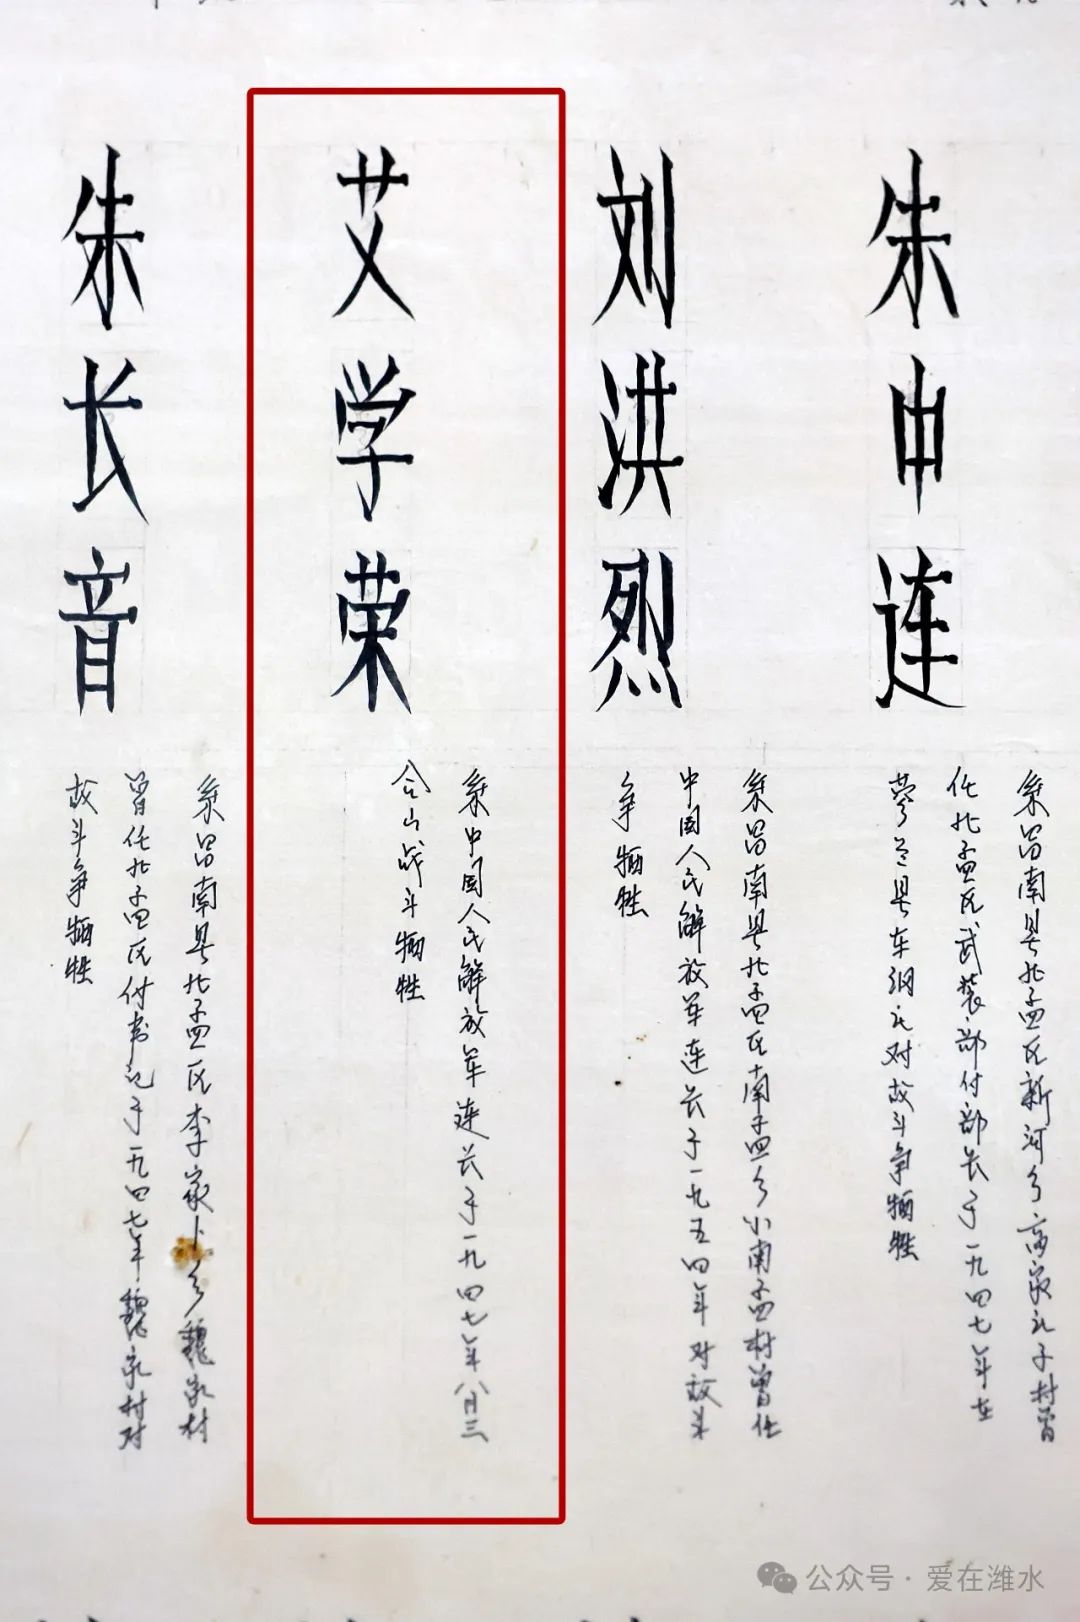 朱申连
系昌南县北孟区新河乡高家庄子村曾
任北孟区武装部付部长于一九四七年在
蓼兰县车网庄对敌斗争牺牲
刘洪烈
系昌南县北孟区南孟乡小南孟村曾任
中国人民解放军连长于一九五四年对敌斗
争牺牲
艾学荣
系中国人民解放军连长于一九四七年八月三
合山战斗牺牲
朱长音
系昌南县北孟区李家卜乡魏家村
曾任北孟区付书记于一九四七年魏家村对
敌斗争牺牲
公众号·爱在潍水